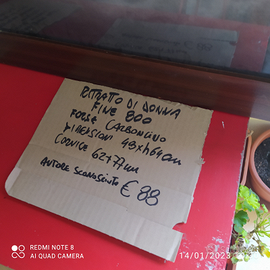 RITRATTO DI DONNA
FINE 800
FORSE CARBONCINO
DIMENSIONI 48x64cm
CORNICE 62x77cm
AUTORE SCONOSCIUTO € 88
REDMI NOTE 8
AI QUAD CAMERA
14/01/2023